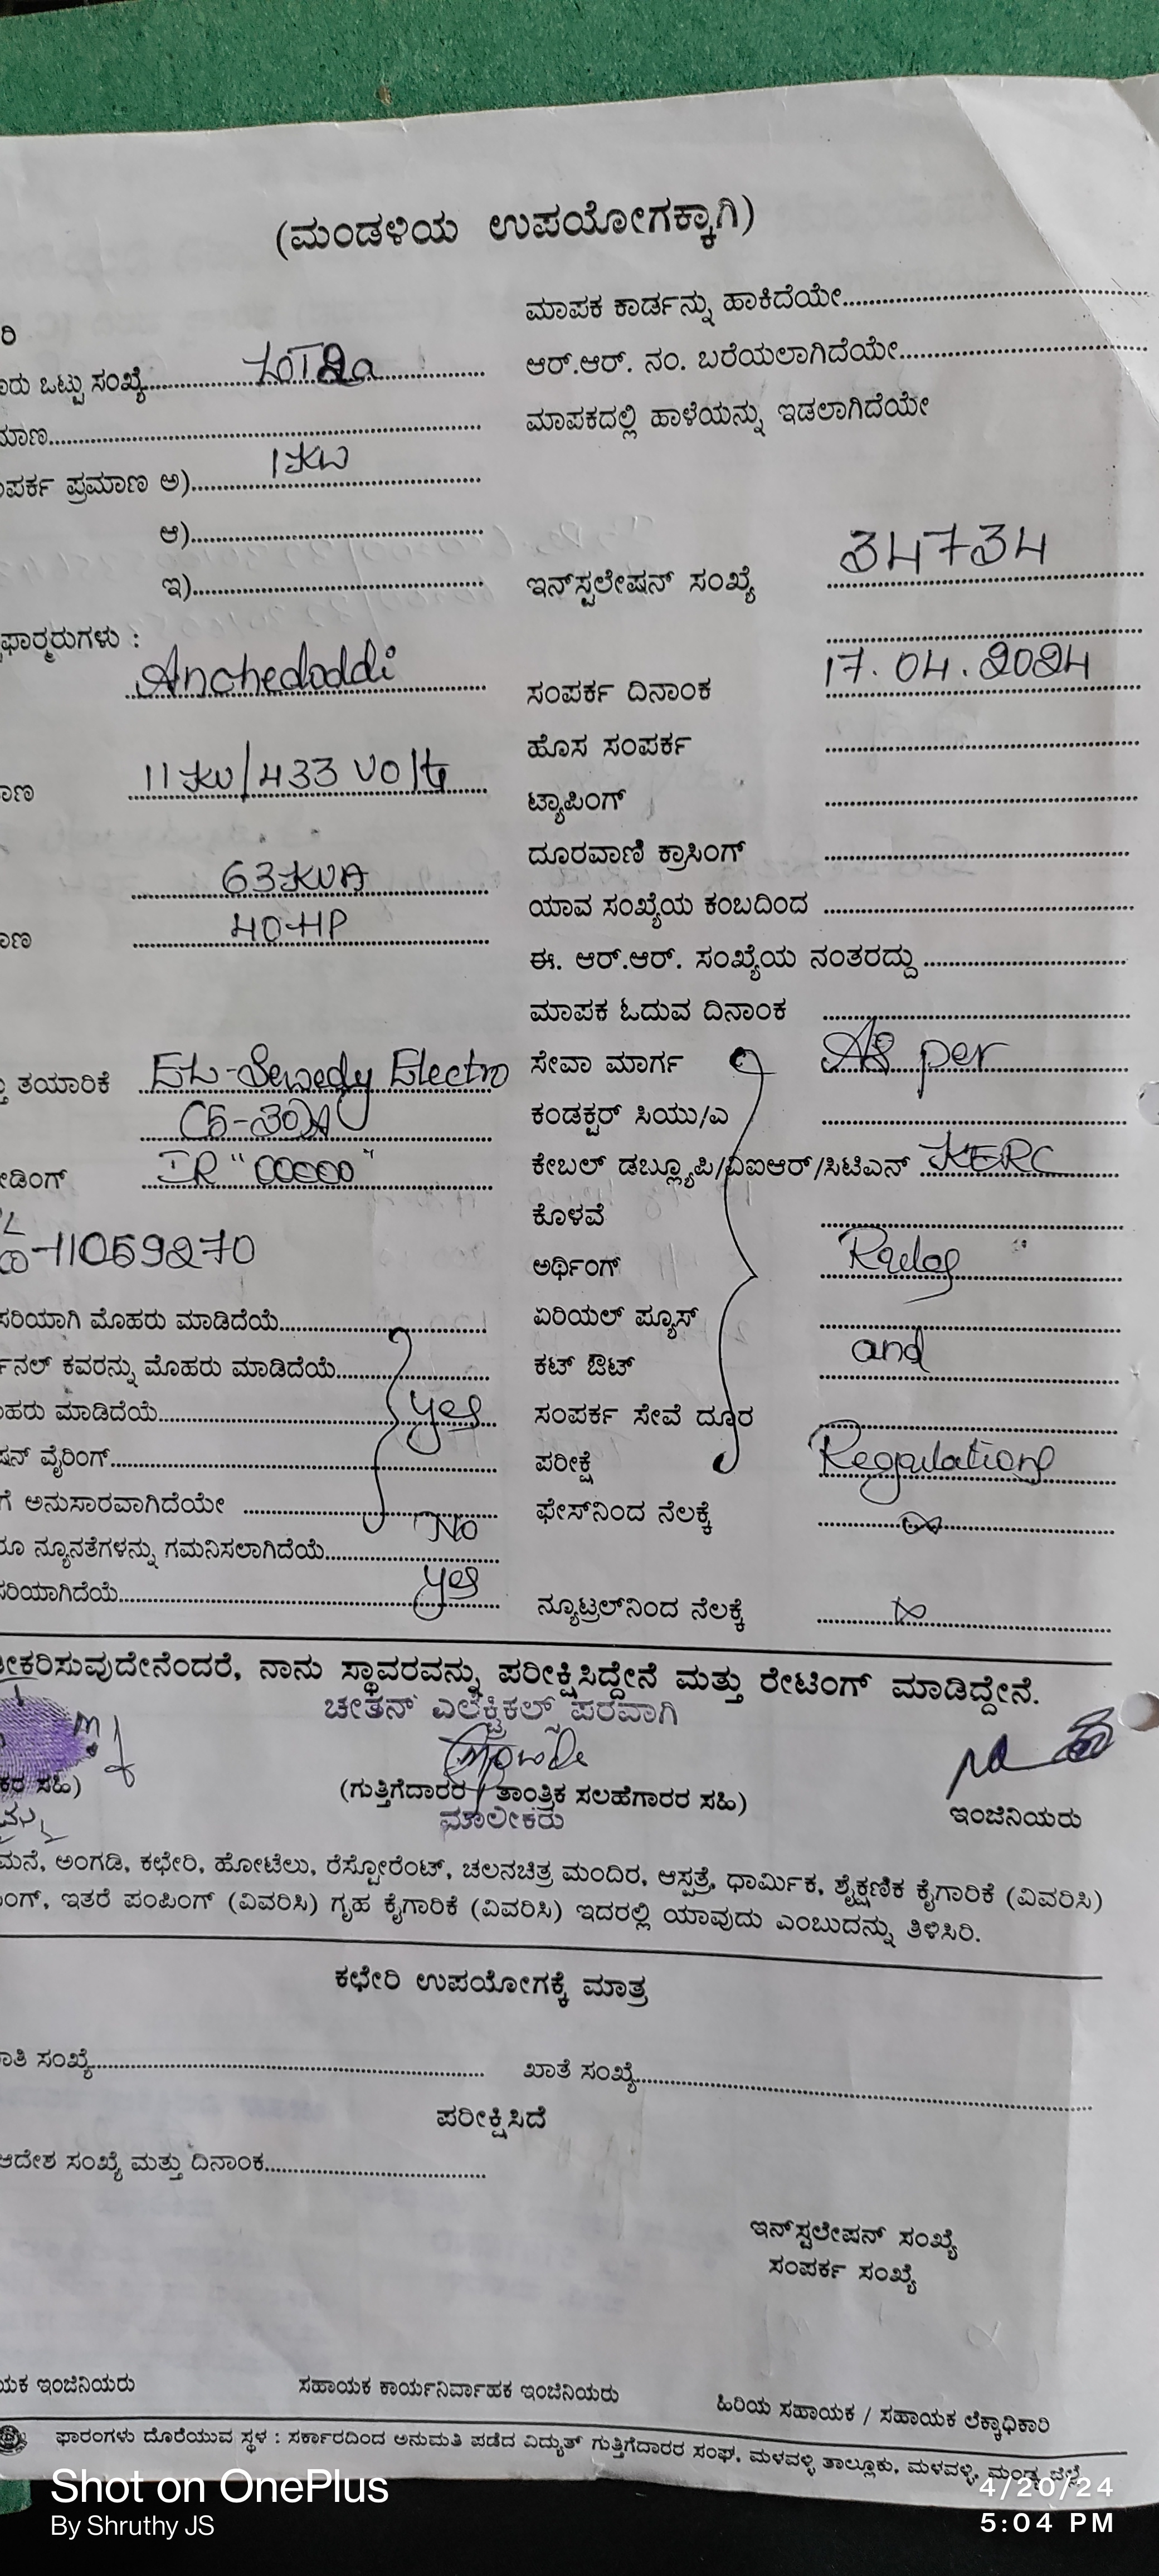 (ಮಂಡಳಿಯ ಉಪಯೋಗಕ್ಕಾಗಿ)
ಮಾಪಕ ಕಾರ್ಡನ್ನು ಹಾಕಿದೆಯೇ
ರಿ
ಆರ್.ಆರ್. ನಂ. ಬರೆಯಲಾಗಿದೆಯೇ
ಒಟ್ಟು ಸಂಖ್ಯೆ
ಮಾಪಕದಲ್ಲಿ ಹಾಳೆಯನ್ನು ಇಡಲಾಗಿದೆಯೇ
ಮಾಣ
ಪರ್ಕ ಪ್ರಮಾಣ ಅ) 1KW
ಆ)
ಇ)
ಇನ್‌ಸ್ಟಲೇಷನ್ ಸಂಖ್ಯೆ 34734
ಫಾರ್‍ಮರುಗಳು :
Anchedoddi
ಸಂಪರ್ಕ ದಿನಾಂಕ 17.04.2024
ಹೊಸ ಸಂಪರ್ಕ
ಾಣ 11KV/433 Volts
ಟ್ಯಾಪಿಂಗ್
ದೂರವಾಣಿ ಕ್ರಾಸಿಂಗ್
63KVA
ಯಾವ ಸಂಖ್ಯೆಯ ಕಂಬದಿಂದ
ಾಣ 40-HP
ಈ. ಆರ್.ಆರ್. ಸಂಖ್ಯೆಯ ನಂತರದ್ದು
ಮಾಪಕ ಓದುವ ದಿನಾಂಕ
ತಯಾರಿಕೆ EL-Sewedy Electro
ಸೇವಾ ಮಾರ್ಗ As per
C5-30A
ಕಂಡಕ್ಟರ್ ಸಿಯು/ಎ
ೇಡಿಂಗ್ IR "00000"
ಕೇಬಲ್ ಡಬ್ಲ್ಯೂಪಿ/ವಿಐಆರ್/ಸಿಟಿಎನ್ KERC
ಕೊಳವೆ
-11059270
ಅರ್ಥಿಂಗ್ Rules
ಸರಿಯಾಗಿ ಮೊಹರು ಮಾಡಿದೆಯೆ
ಏರಿಯಲ್ ಪ್ಯೂಸ್
ನಲ್ ಕವರನ್ನು ಮೊಹರು ಮಾಡಿದೆಯೆ
ಕಟ್ ಔಟ್ and
ಹರು ಮಾಡಿದೆಯೆ Yes
ಸಂಪರ್ಕ ಸೇವೆ ದೂರ
ಷನ್ ವೈರಿಂಗ್
ಪರೀಕ್ಷೆ Regulations
ಗೆ ಅನುಸಾರವಾಗಿದೆಯೇ
ಫೇಸ್‌ನಿಂದ ನೆಲಕ್ಕೆ ∞
ರೂ ನ್ಯೂನತೆಗಳನ್ನು ಗಮನಿಸಲಾಗಿದೆಯೆ No
ಸರಿಯಾಗಿದೆಯೆ Yes
ನ್ಯೂಟ್ರಲ್‌ನಿಂದ ನೆಲಕ್ಕೆ ∞
ೀಕರಿಸುವುದೇನೆಂದರೆ, ನಾನು ಸ್ಥಾವರವನ್ನು ಪರೀಕ್ಷಿಸಿದ್ದೇನೆ ಮತ್ತು ರೇಟಿಂಗ್ ಮಾಡಿದ್ದೇನೆ.
ಚೇತನ್ ಎಲೆಕ್ಟ್ರಿಕಲ್ಸ್ ಪರವಾಗಿ
ಕರ ಸಹಿ)
(ಗುತ್ತಿಗೆದಾರರ / ತಾಂತ್ರಿಕ ಸಲಹೆಗಾರರ ಸಹಿ)
ಇಂಜಿನಿಯರು
ಮಾಲೀಕರು
ಮನೆ, ಅಂಗಡಿ, ಕಛೇರಿ, ಹೋಟೆಲು, ರೆಸ್ಟೋರೆಂಟ್, ಚಲನಚಿತ್ರ ಮಂದಿರ, ಆಸ್ಪತ್ರೆ, ಧಾರ್ಮಿಕ, ಶೈಕ್ಷಣಿಕ ಕೈಗಾರಿಕೆ (ವಿವರಿಸಿ)
ಂಗ್, ಇತರೆ ಪಂಪಿಂಗ್ (ವಿವರಿಸಿ) ಗೃಹ ಕೈಗಾರಿಕೆ (ವಿವರಿಸಿ) ಇದರಲ್ಲಿ ಯಾವುದು ಎಂಬುದನ್ನು ತಿಳಿಸಿರಿ.
ಕಛೇರಿ ಉಪಯೋಗಕ್ಕೆ ಮಾತ್ರ
ಾತಿ ಸಂಖ್ಯೆ
ಖಾತೆ ಸಂಖ್ಯೆ
ಪರೀಕ್ಷಿಸಿದೆ
ಆದೇಶ ಸಂಖ್ಯೆ ಮತ್ತು ದಿನಾಂಕ
ಇನ್‌ಸ್ಟಲೇಷನ್ ಸಂಖ್ಯೆ
ಸಂಪರ್ಕ ಸಂಖ್ಯೆ
ಯಕ ಇಂಜಿನಿಯರು
ಸಹಾಯಕ ಕಾರ್ಯನಿರ್ವಾಹಕ ಇಂಜಿನಿಯರು
ಹಿರಿಯ ಸಹಾಯಕ / ಸಹಾಯಕ ಲೆಕ್ಕಾಧಿಕಾರಿ
ಫಾರಂಗಳು ದೊರೆಯುವ ಸ್ಥಳ : ಸರ್ಕಾರದಿಂದ ಅನುಮತಿ ಪಡೆದ ವಿದ್ಯುತ್ ಗುತ್ತಿಗೆದಾರರ ಸಂಘ, ಮಳವಳ್ಳಿ ತಾಲ್ಲೂಕು, ಮಳವಳ್ಳಿ, ಮಂಡ್ಯ ಜಿಲ್ಲೆ
Shot on OnePlus
By Shruthy JS
4/20/24
5:04 PM